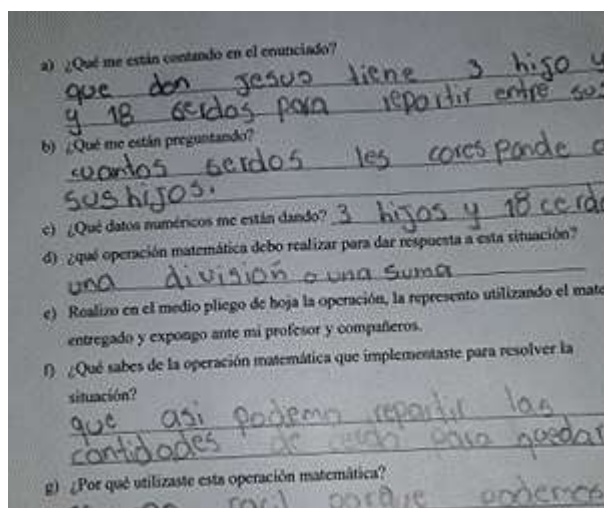 a) ¿Qué me están contando en el enunciado?
que don Jesus tiene 3 hijo y
y 18 serdos para repartir entre sus
b) ¿Qué me están preguntando?
cuantos serdos les cores ponde
sus hijos.
c) ¿Qué datos numéricos me están dando? 3 hijos y 18 cerdo
d) ¿qué operación matemática debo realizar para dar respuesta a esta situación?
una división o una suma
e) Realizo en el medio pliego de hoja la operación, la represento utilizando el mate
entregado y expongo ante mi profesor y compañeros.
f) ¿Qué sabes de la operación matemática que implementaste para resolver la
situación?
que asi podemo repartir las
cantidades de cerdo para quedar
g) ¿Por qué utilizaste esta operación matemática?
facil porque podemos